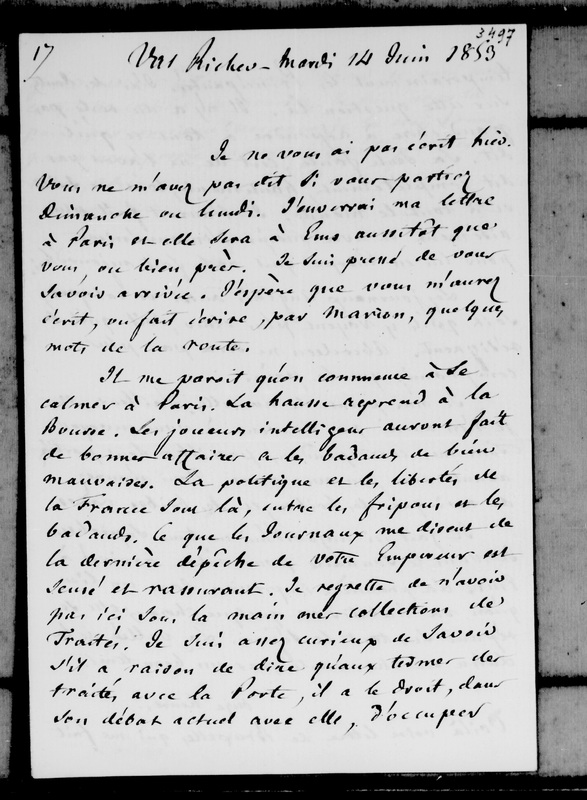 3497
17
Val Richer - Mardi 14 Juin 1853
Je ne vous ai pas écrit hier.
Vous ne m'avez pas dit si vous partiez
Dimanche ou lundi. J'enverrai ma lettre
à Paris et elle sera à Ems aussitôt que
vous, ou bien près. Je suis pressé de vous
savoir arrivée. J'espère que vous m'aurez
écrit, ou fait écrire, par Marion, quelques
mots de la route.
Il me paroit qu'on commence à se
calmer à Paris. La hausse reprend à la
Bourse. Les joueurs intelligens auront fait
de bonnes affaires et les badauds de bien
mauvaises. La politique et les libertés de
la France sont là, entre les fripons et les
badauds. Ce que les Journaux me disent de
la dernière dépêche de votre Empereur est
sensé et rassurant. Je regrette de n'avoir
pas ici sous la main mes collections de
Traités. Je suis assez curieux de savoir
s'il a raison de dire qu'aux termes des
traités avec la Porte, il a le droit, dans
son débat actuel avec elle, d'occuper